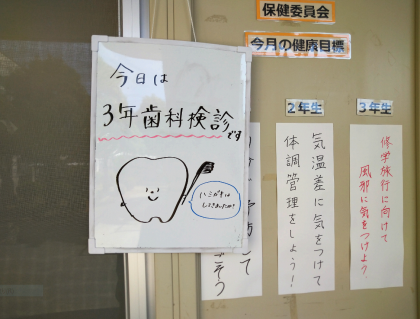 保健委員会
今月の健康目標
今日は
3年歯科検診
です
ハミガキは
2年生
気温差に気をつけて
体調管理をしよう!
3年生
修学旅行に向けて
風邪に気をつけよう